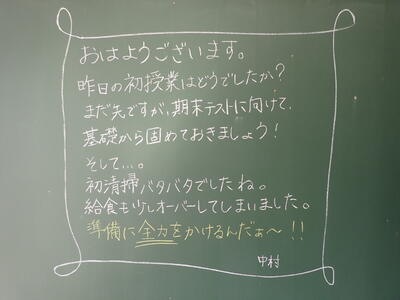 おはようございます。
昨日の初授業はどうでしたか?
まだ先ですが、期末テストに向けて、
基礎から固めておきましょう!
そして…。
初清掃バタバタでしたね。
給食も少しオーバーしてしまいました。
準備に全力をかけるんだぁ〜!!
中村